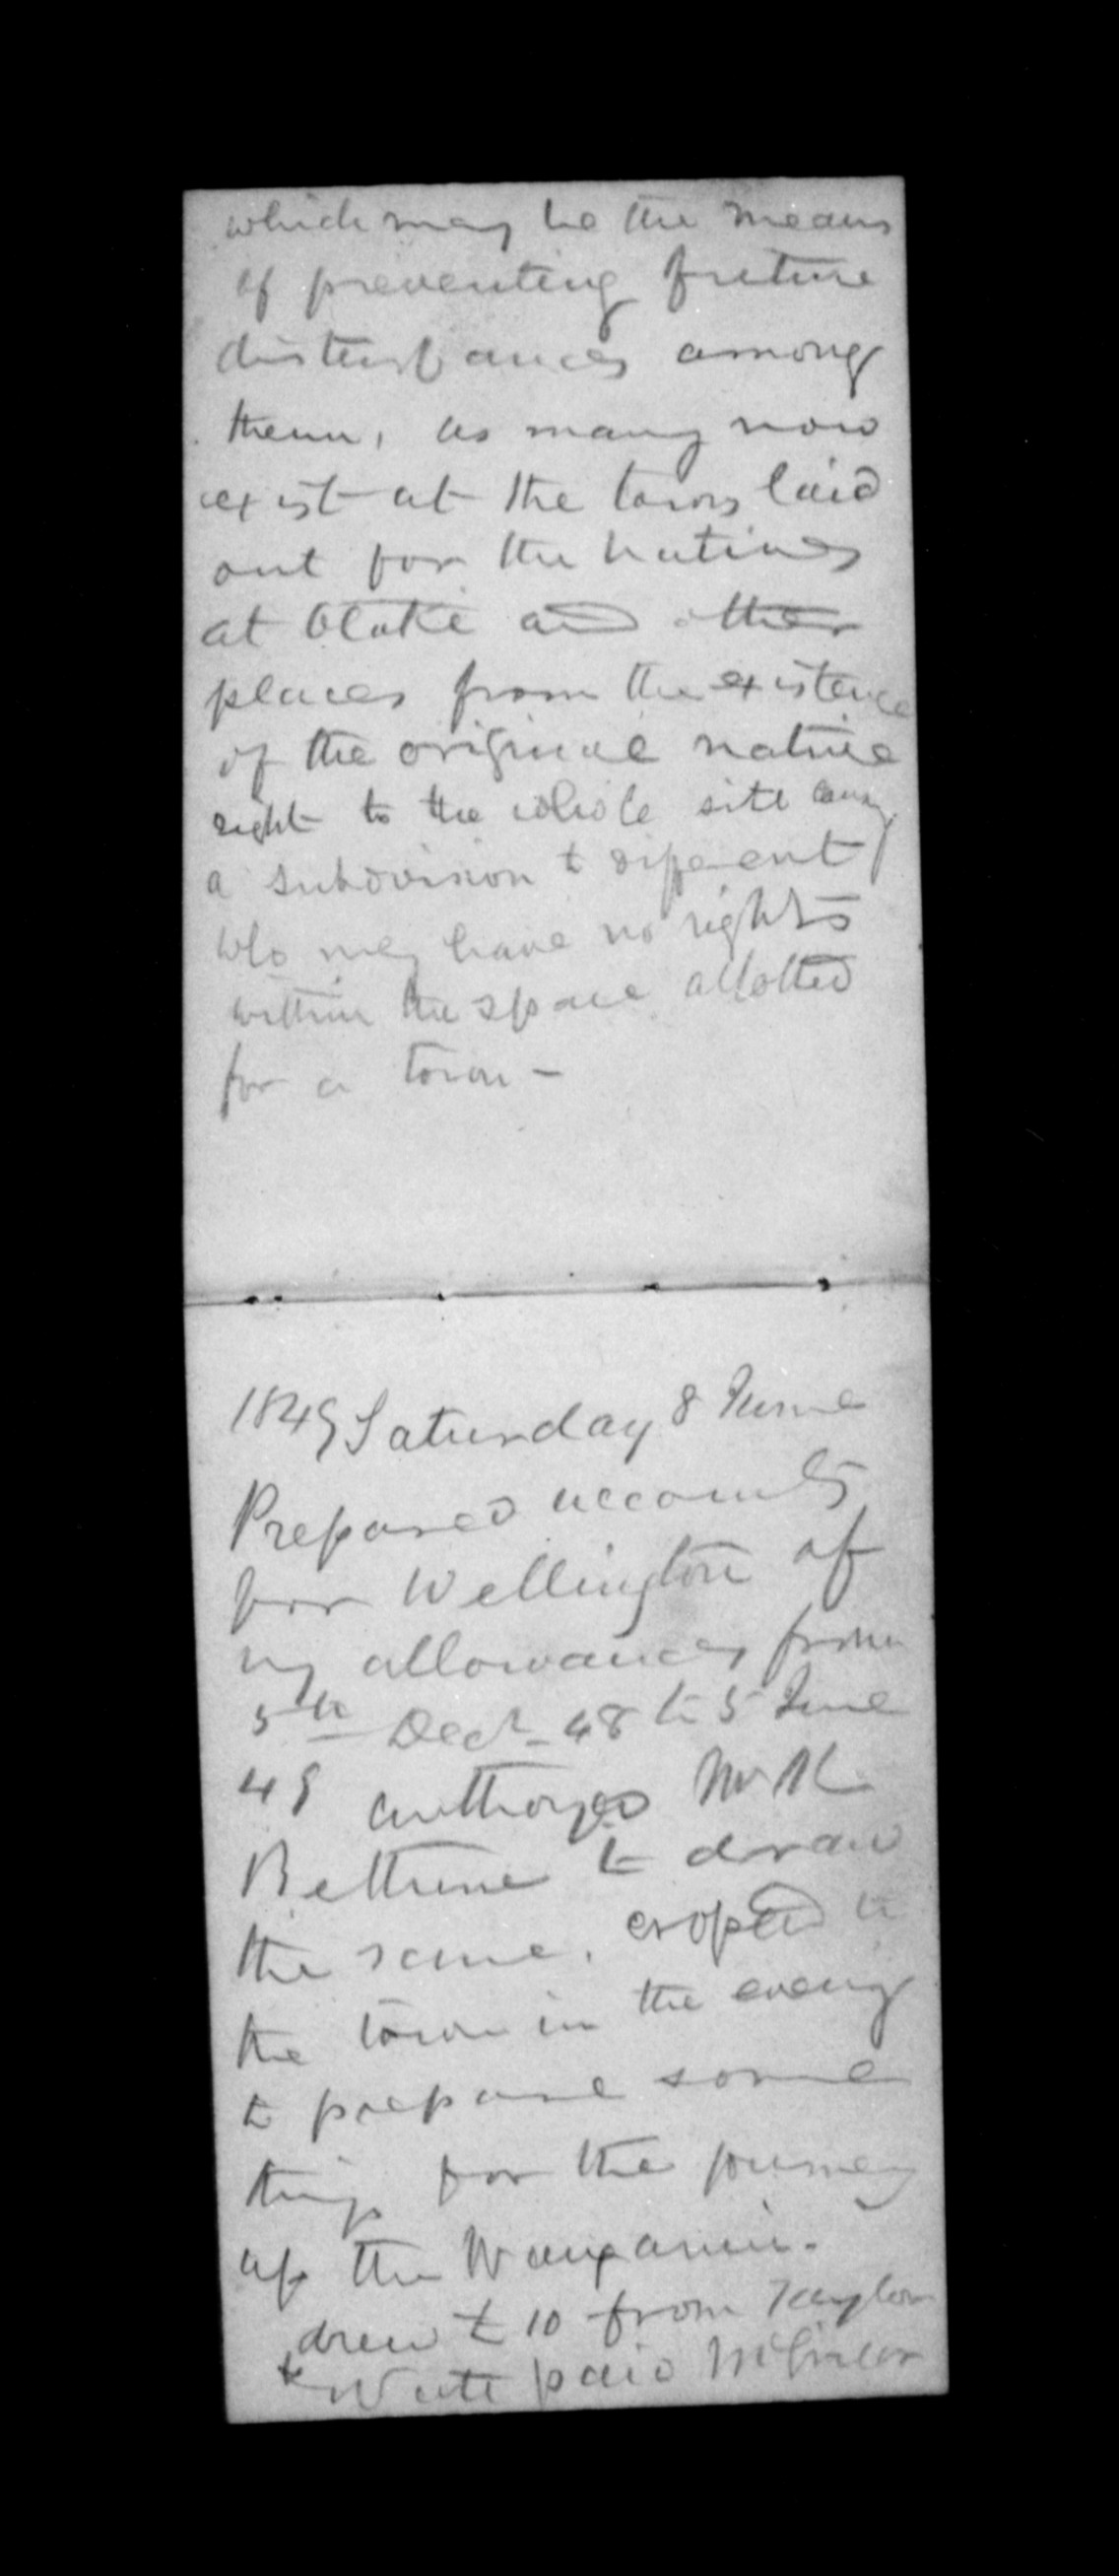 which may be the means
of preventing future
disturbances among
them, as many now
exist at the towns laid
out for the natives
at Otaki and other
places from the existence
of the original native
right to the whole site
a subdivision to different
who may have no rights
within the space allotted
for a town -
1849 Saturday 8 June
Prepared accounts
for Wellington of
my allowances from
5th Decr - 48 to 5 June
49 authorized Mr K
Bethune to draw
the same. crossed to
the town in the eveng
to prepare some
things for the journey
up the Wanganui.
drew £10 from Taylor
& Watt paid McGregor